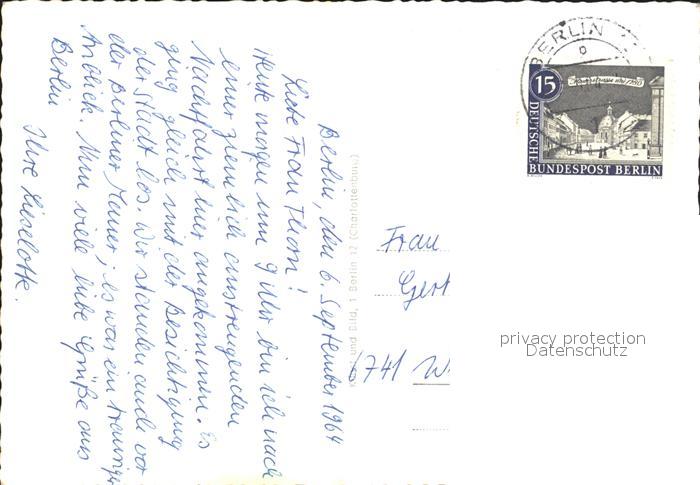 Berlin, den 6. September 1964
Liebe Frau Thom!
Heute morgen um 9 Uhr bin ich nach
einer ziemlich anstrengenden
Nachtfahrt hier angekommen. Es
ging gleich mit der Besichtigung
der Stadt los. Wir standen auch vor
der Berliner Mauer; es war ein trauriger
Anblick. Nun viele liebe Grüße aus
Berlin
Ihre Lieselotte.
und Bild, 1 Berlin 12 (Charlottenburg)
Frau
Gert
6741 W
BERLIN
15
DEUTSCHE
BUNDESPOST BERLIN
privacy protection
Datenschutz